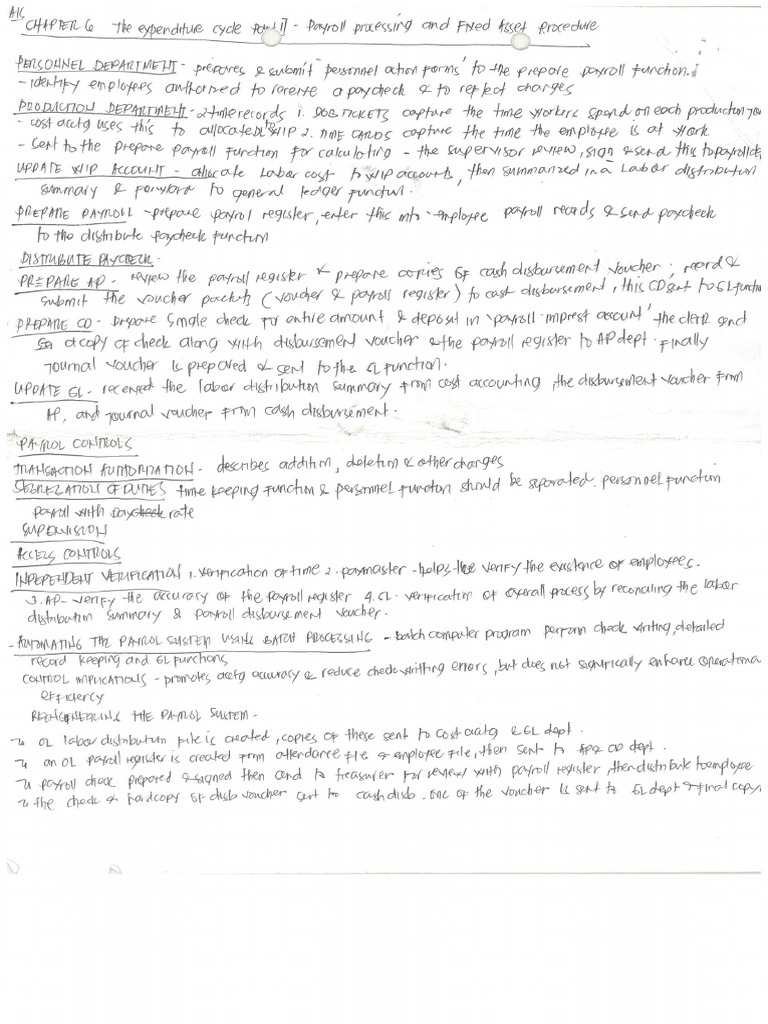 AIS
CHAPTER 6 The expenditure cycle Part II - Payroll processing and Fixed Asset Procedure
PERSONNEL DEPARTMENT - prepares & submit "personnel action forms" to the prepare payroll function.
- identify employees authorized to receive a paycheck & to reflect changes
PRODUCTION DEPARTMENT - 2 time records 1. JOB TICKETS capture the time workers spend on each production
- cost acctg uses this to allocate DL to WIP 2. TIME CARDS capture the time the employee is at work
- sent to the prepare payroll function for calculating - the supervisor review, sign & send this to payroll
UPDATE WIP ACCOUNT - allocate labor cost to WIP accounts, then summarized in a labor distribution
summary & forward to general ledger function.
PREPARE PAYROLL - prepare payrol register, enter this into employee payroll records & send paycheck
to the distribute paycheck function
DISTRIBUTE PAYCHECK -
PREPARE AP - review the payroll register & prepare copies of cash disbursement voucher, record &
submit the voucher packets (voucher & payroll register) to cash disbursement, this CD sent to GL function
PREPARE CD - prepare single check for entire amount & deposit in "payroll imprest account" the clerk send
a copy of check along with disbursement voucher & the payroll register to AP dept. Finally
journal voucher is prepared & sent to the GL function.
UPDATE GL - received the labor distribution summary from cost accounting, the disbursement voucher from
AP, and journal voucher from cash disbursement.
PAYROL CONTROLS
TRANSACTION AUTHORIZATION - describes addition, deletion & other changes
SEGREGATION OF DUTIES time keeping function & personnel function should be separated. personnel function
payroll with paycheck rate
SUPERVISION
ACCESS CONTROLS
INDEPENDENT VERIFICATION 1. verification of time 2. paymaster - helps the verify the existence of employees.
3. AP - verify the accuracy of the payroll register 4. GL - verification of overall process by reconciling the labor
distribution summary & payroll disbursement voucher.
- AUTOMATING THE PAYROL SYSTEM USING BATCH PROCESSING - batch computer program perform check writing, detailed
record keeping and GL functions
CONTROL IMPLICATIONS - promotes acctg accuracy & reduce check writting errors, but does not significally enhance operationa
efficiency
REENGINEERING THE PAYROL SYSTEM -
OL labor distribution file is created, copies of these sent to cost acctg & GL dept.
an OL payroll register is created from attendance file & employee file, then sent to AP & CD dept.
payroll check prepared & signed then send to treasurer for review with payroll register, then distribute to employee
the check & hardcopy of disb voucher sent to cash disb. one of the voucher is sent to GL dept & final copy